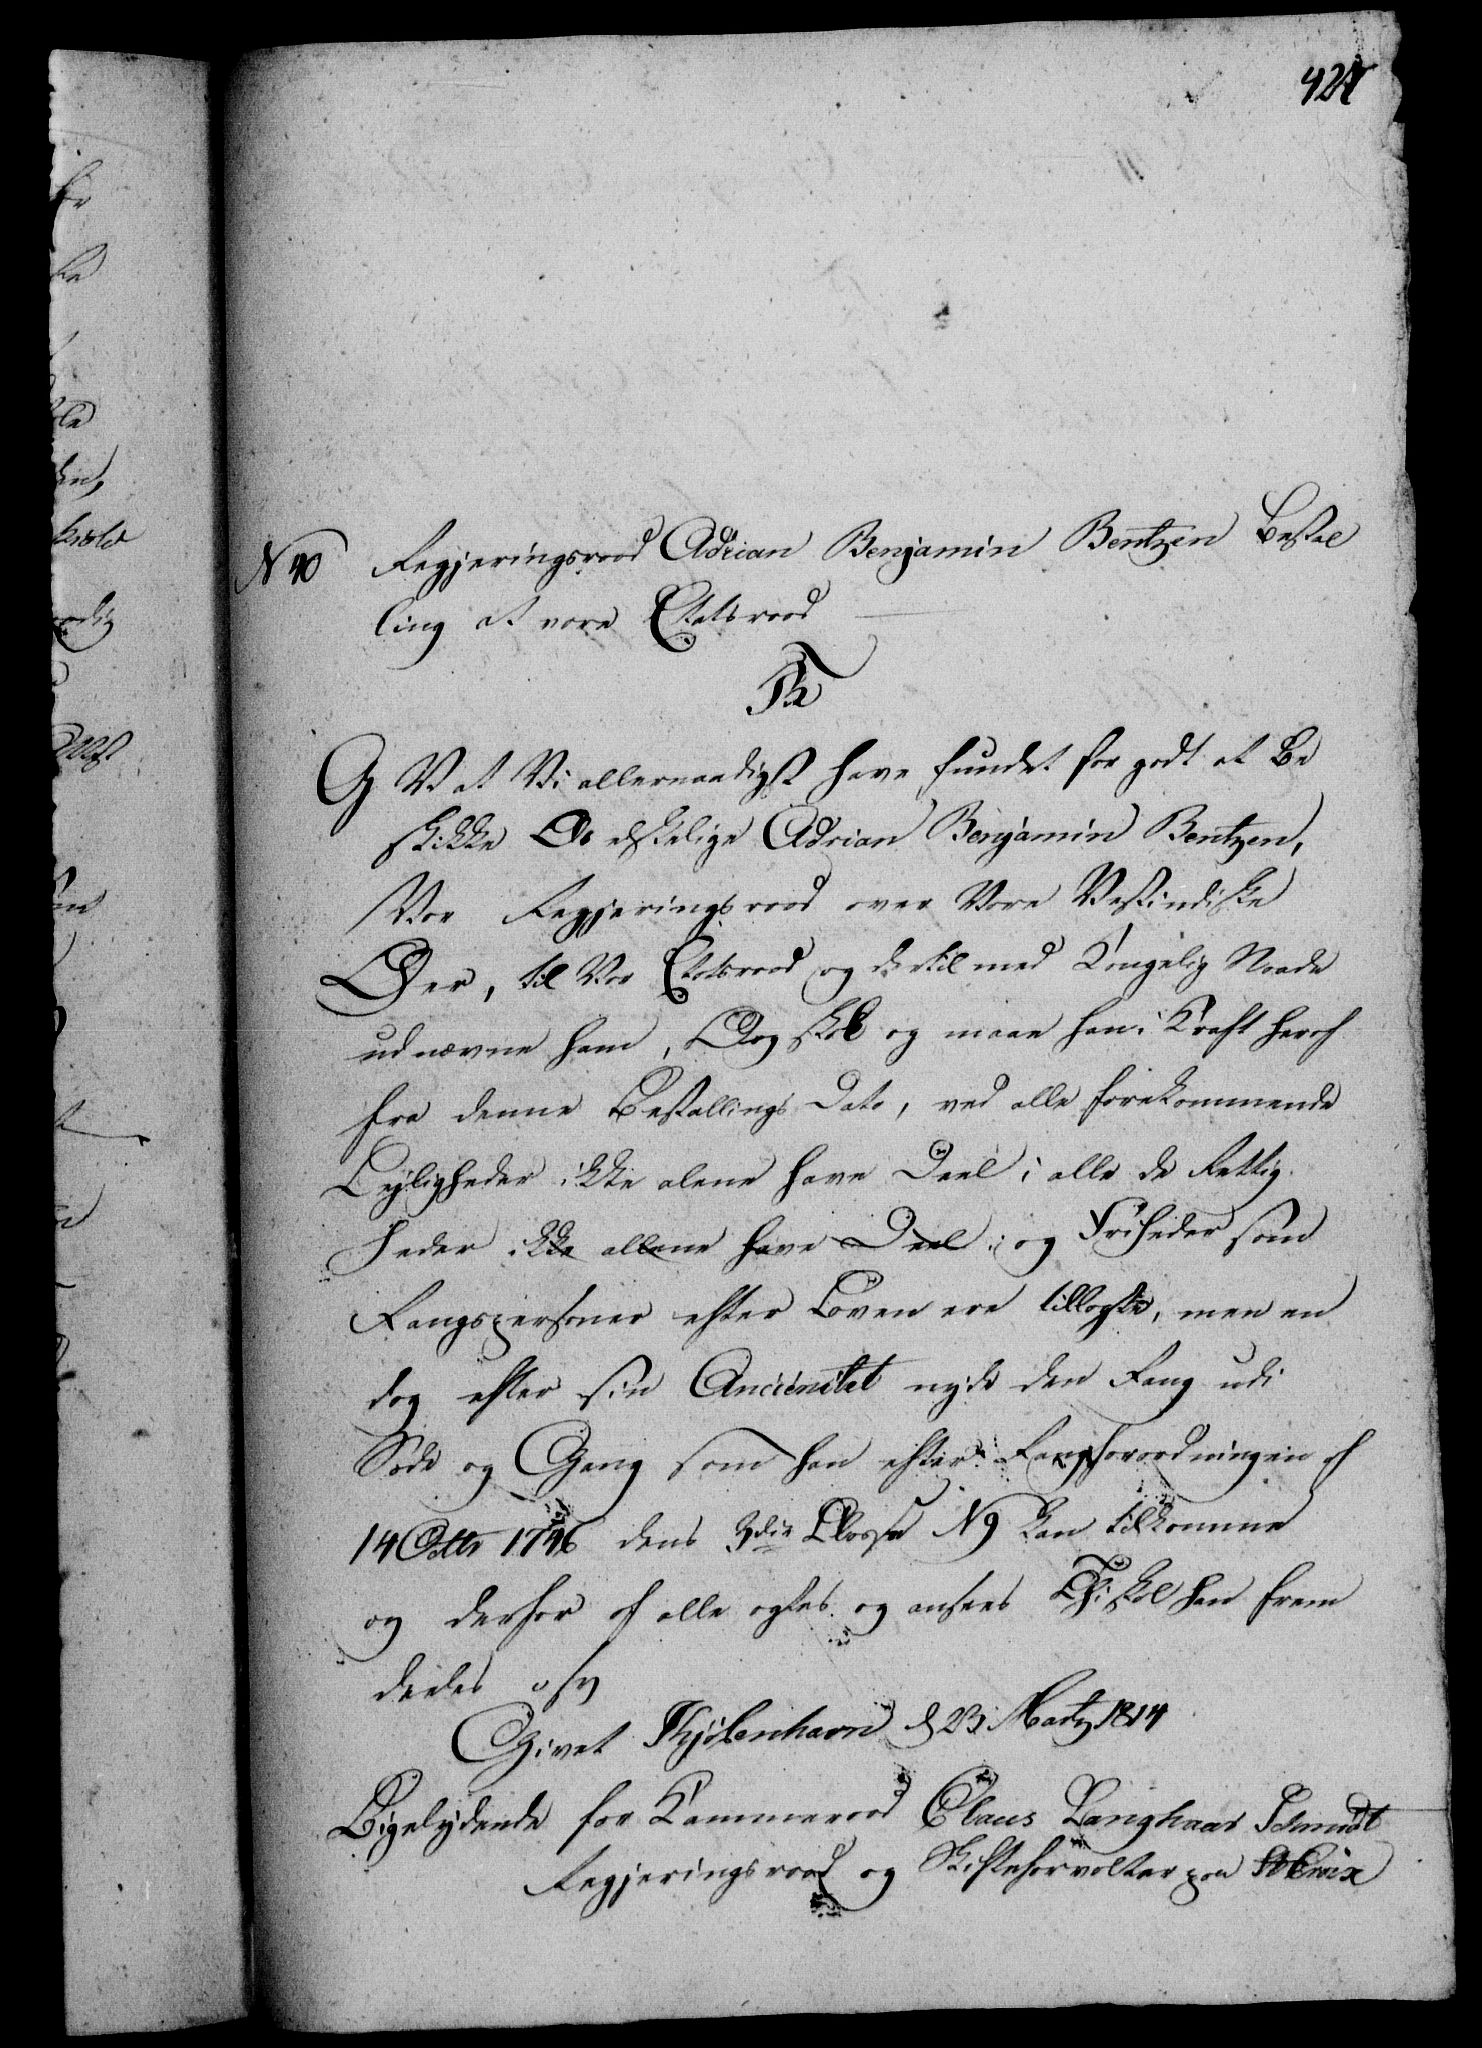 N 40 Regjeringsraad Adrian Benjamin Bentzen Bestal
ling at være Etatsraad
FR
G V at Vi allernaadigst have fundet for godt at be
skikke Os elskelige Adrian Benjamin Bentzen,
Vor Regjeringsraad over Vore Vestindiske
Öer, til Vor Etatsraad og dertil med Kongelig Naade
udnævne ham, Og skal og maae han i Kraft heraf
fra denne Bestallings Dato, ved alle forekommende
Lejligheder ikke alene have Deel i alle de Rettig
heder ikke allene have Deel i og Friheder som
Rangspersoner efter Loven ere tillagte, men en
dog efter sin Anciënitet nyde den Rang udi
Sæde og Gang som han efter Rangforordningen af
14 Octbr 1746 dens 3die Classe N 9 kan tilkomme
og derfor af alle agtes og ansees Thi skal han frem
deeles osv
Givet Kjöbenhavn d 23 Martz 1814
Ligelydende for Kammeraad Claus Langhaar Schmidt
Regjeringsraad og Skifteforvalter paa St Croix